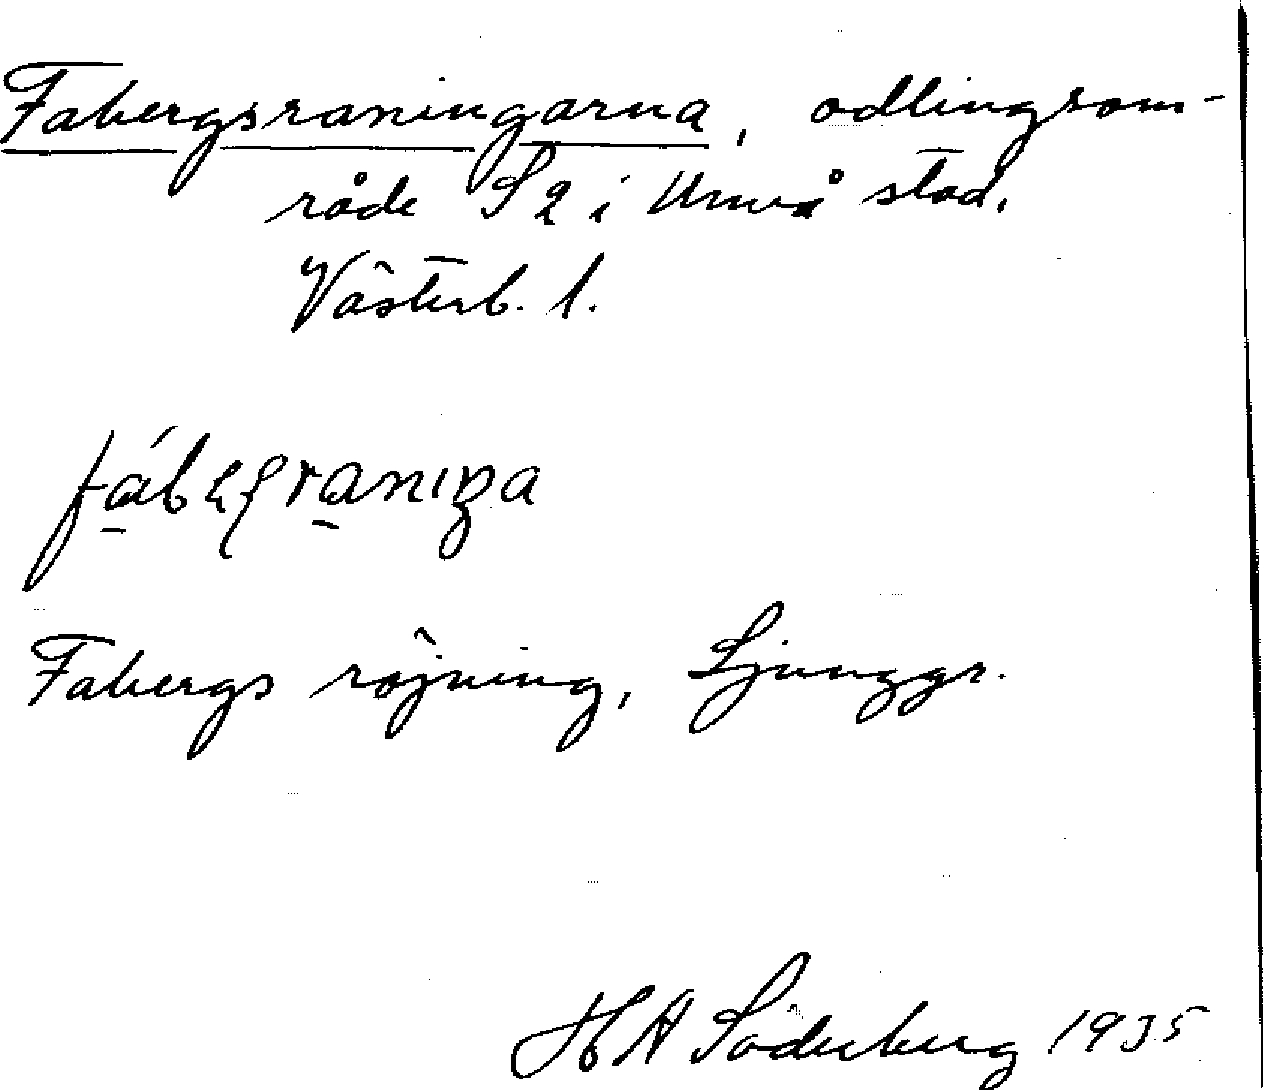 Fabergsraningarna, odlingsom-
råde S 2 i Umeå stad.
Västerb. l.
Fabergs röjning, Ljunggr.
H A Söderberg 1935